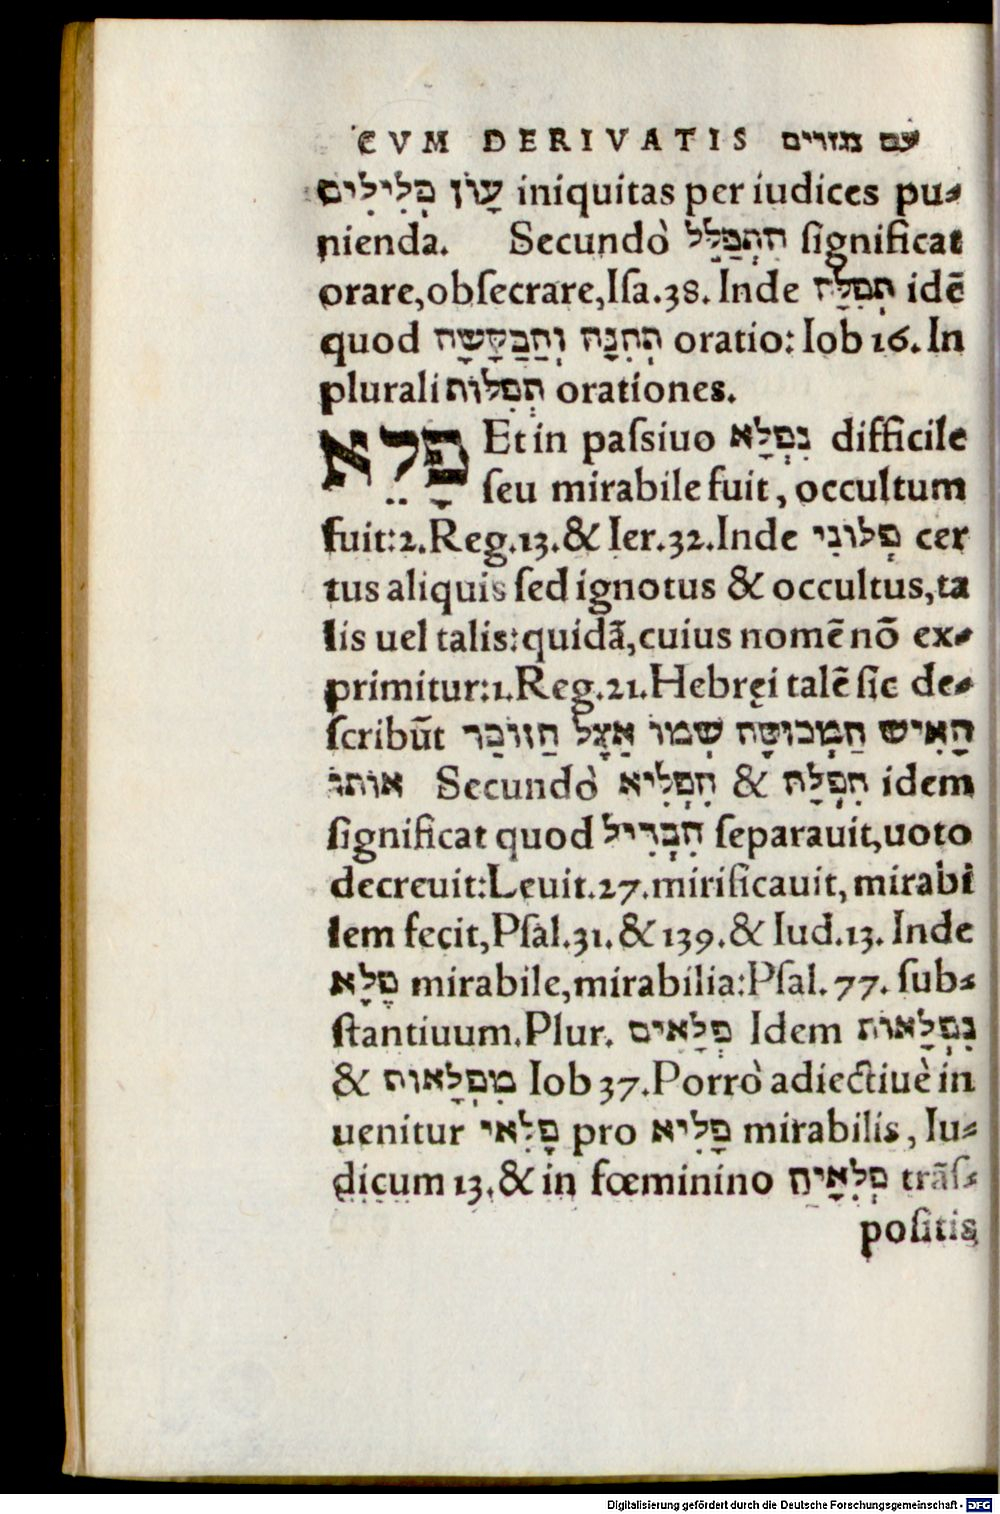 CVM DERIVATIS עם נגזרים
עָוֹן פְּלִילִים iniquitas per iudices pu-
nienda. Secundò הִתְפַּלֵּל ſignificat
orare,obſecrare,Iſa.38. Inde תְּפִלָּה idẽ
quod תְּחִנָּה וְהַבַּקָּשָׁה oratio: Iob 16. In
plurali תְּפִלּוֹת orationes.
פָּלֵא Et in paſsiuo נִפְלָא difficile
ſeu mirabile fuit, occultum
fuit:2.Reg.13.& Ier.32.Inde פְּלוֹנִי cer
tus aliquis ſed ignotus & occultus,ta
lis uel talis:quidã,cuius nomẽ nõ ex-
primitur:1.Reg.21.Hebręi talẽ ſic de-
ſcribũt הָאִישׁ הַמְכוּסֶּה שְׁמוֹ אֵצֶל הַדּוֹבֵר
אוֹתוֹ Secundò הִפְלִיא & הִפְלָה idem
ſignificat quod הִבְדִּיל ſeparauit,uoto
decreuit:Leuit.27.mirificauit, mirabi
lem fecit,Pſal.31.& 139.& Iud.13. Inde
פֶּלֶא mirabile,mirabilia:Pſal. 77. ſub-
ſtantiuum.Plur. פְּלָאִים Idem נִפְלָאוֹת
& מִפְלָאוֹת Iob 37.Porrò adiectiuè in
uenitur פֶּלִאי pro פָּלִיא mirabilis, Iu-
dicum 13.& in fœminino פְּלִאָיה trãſ-
poſitis
Digitalisierung gefördert durch die Deutsche Forschungsgemeinschaft - DFG